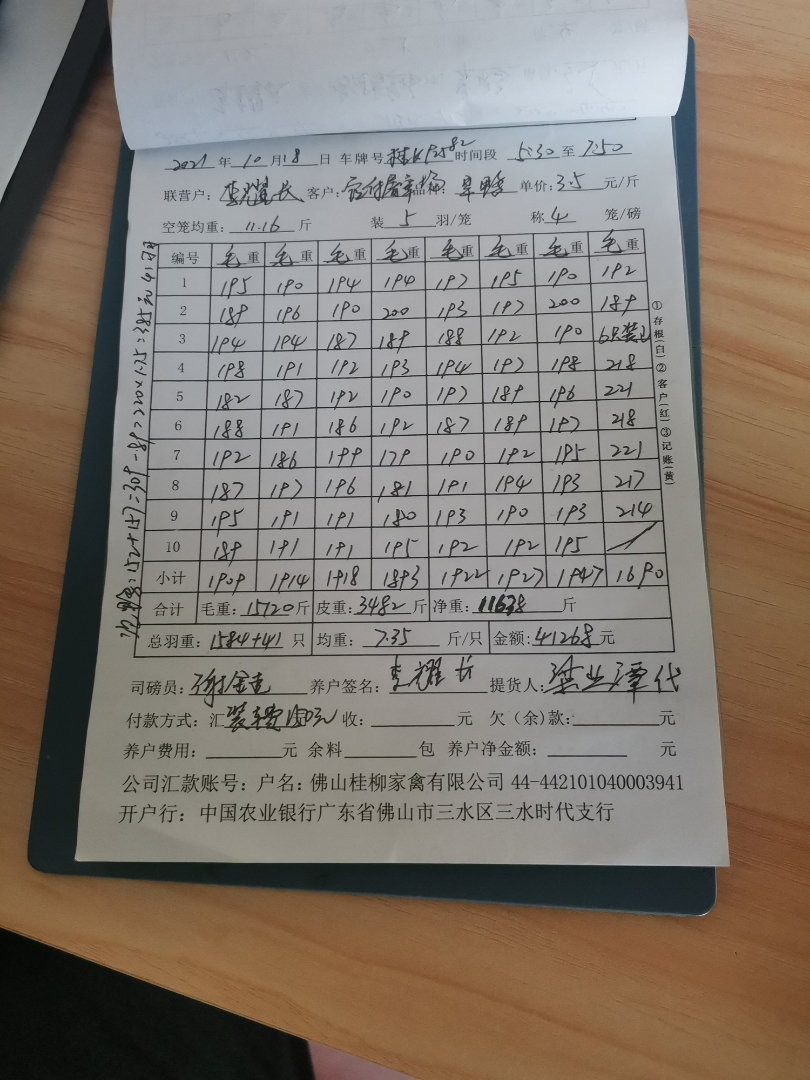 2021 年 10 月 18 日 车牌号 桂KP2582 时间段 5:30 至 7:50
联营户: 李耀长 客户: 宰场 品种: 单价: 3.5 元/斤
空笼均重: 11.16 斤 装 5 羽/笼 称 4 笼/磅
编号 毛重 毛重 毛重 毛重 毛重 毛重 毛重 毛重
1 195 190 194 194 197 195 190 192
2 189 196 190 200 193 197 200 189
3 194 194 187 189 188 192 190 6只装
4 198 191 192 193 194 197 198 218
5 182 187 192 190 197 189 196 221
6 188 191 186 192 187 189 197 218
7 192 186 199 179 190 192 195 221
8 187 197 196 181 191 194 193 217
9 195 191 191 180 193 190 193 214
10 189 191 191 195 192 192 195 /
小计 1909 1914 1918 1893 1922 1927 1947 1690
合计 毛重: 15120 斤 皮重: 3482 斤 净重: 11638 斤
总羽重: 1584+41 只 均重: 7.35 斤/只 金额: 41268 元
司磅员: 谢金 养户签名: 李耀长 提货人: 梁 潭代
付款方式: 汇 装费 收: 元 欠(余)款: 元
养户费用: 元 余料 包 养户净金额: 元
公司汇款账号: 户名: 佛山桂柳家禽有限公司 44-442101040003941
开户行: 中国农业银行广东省佛山市三水区三水时代支行
①存根(白)②客户(红)③记账(黄)
152+157=309-89=220×1.75=385元 41只